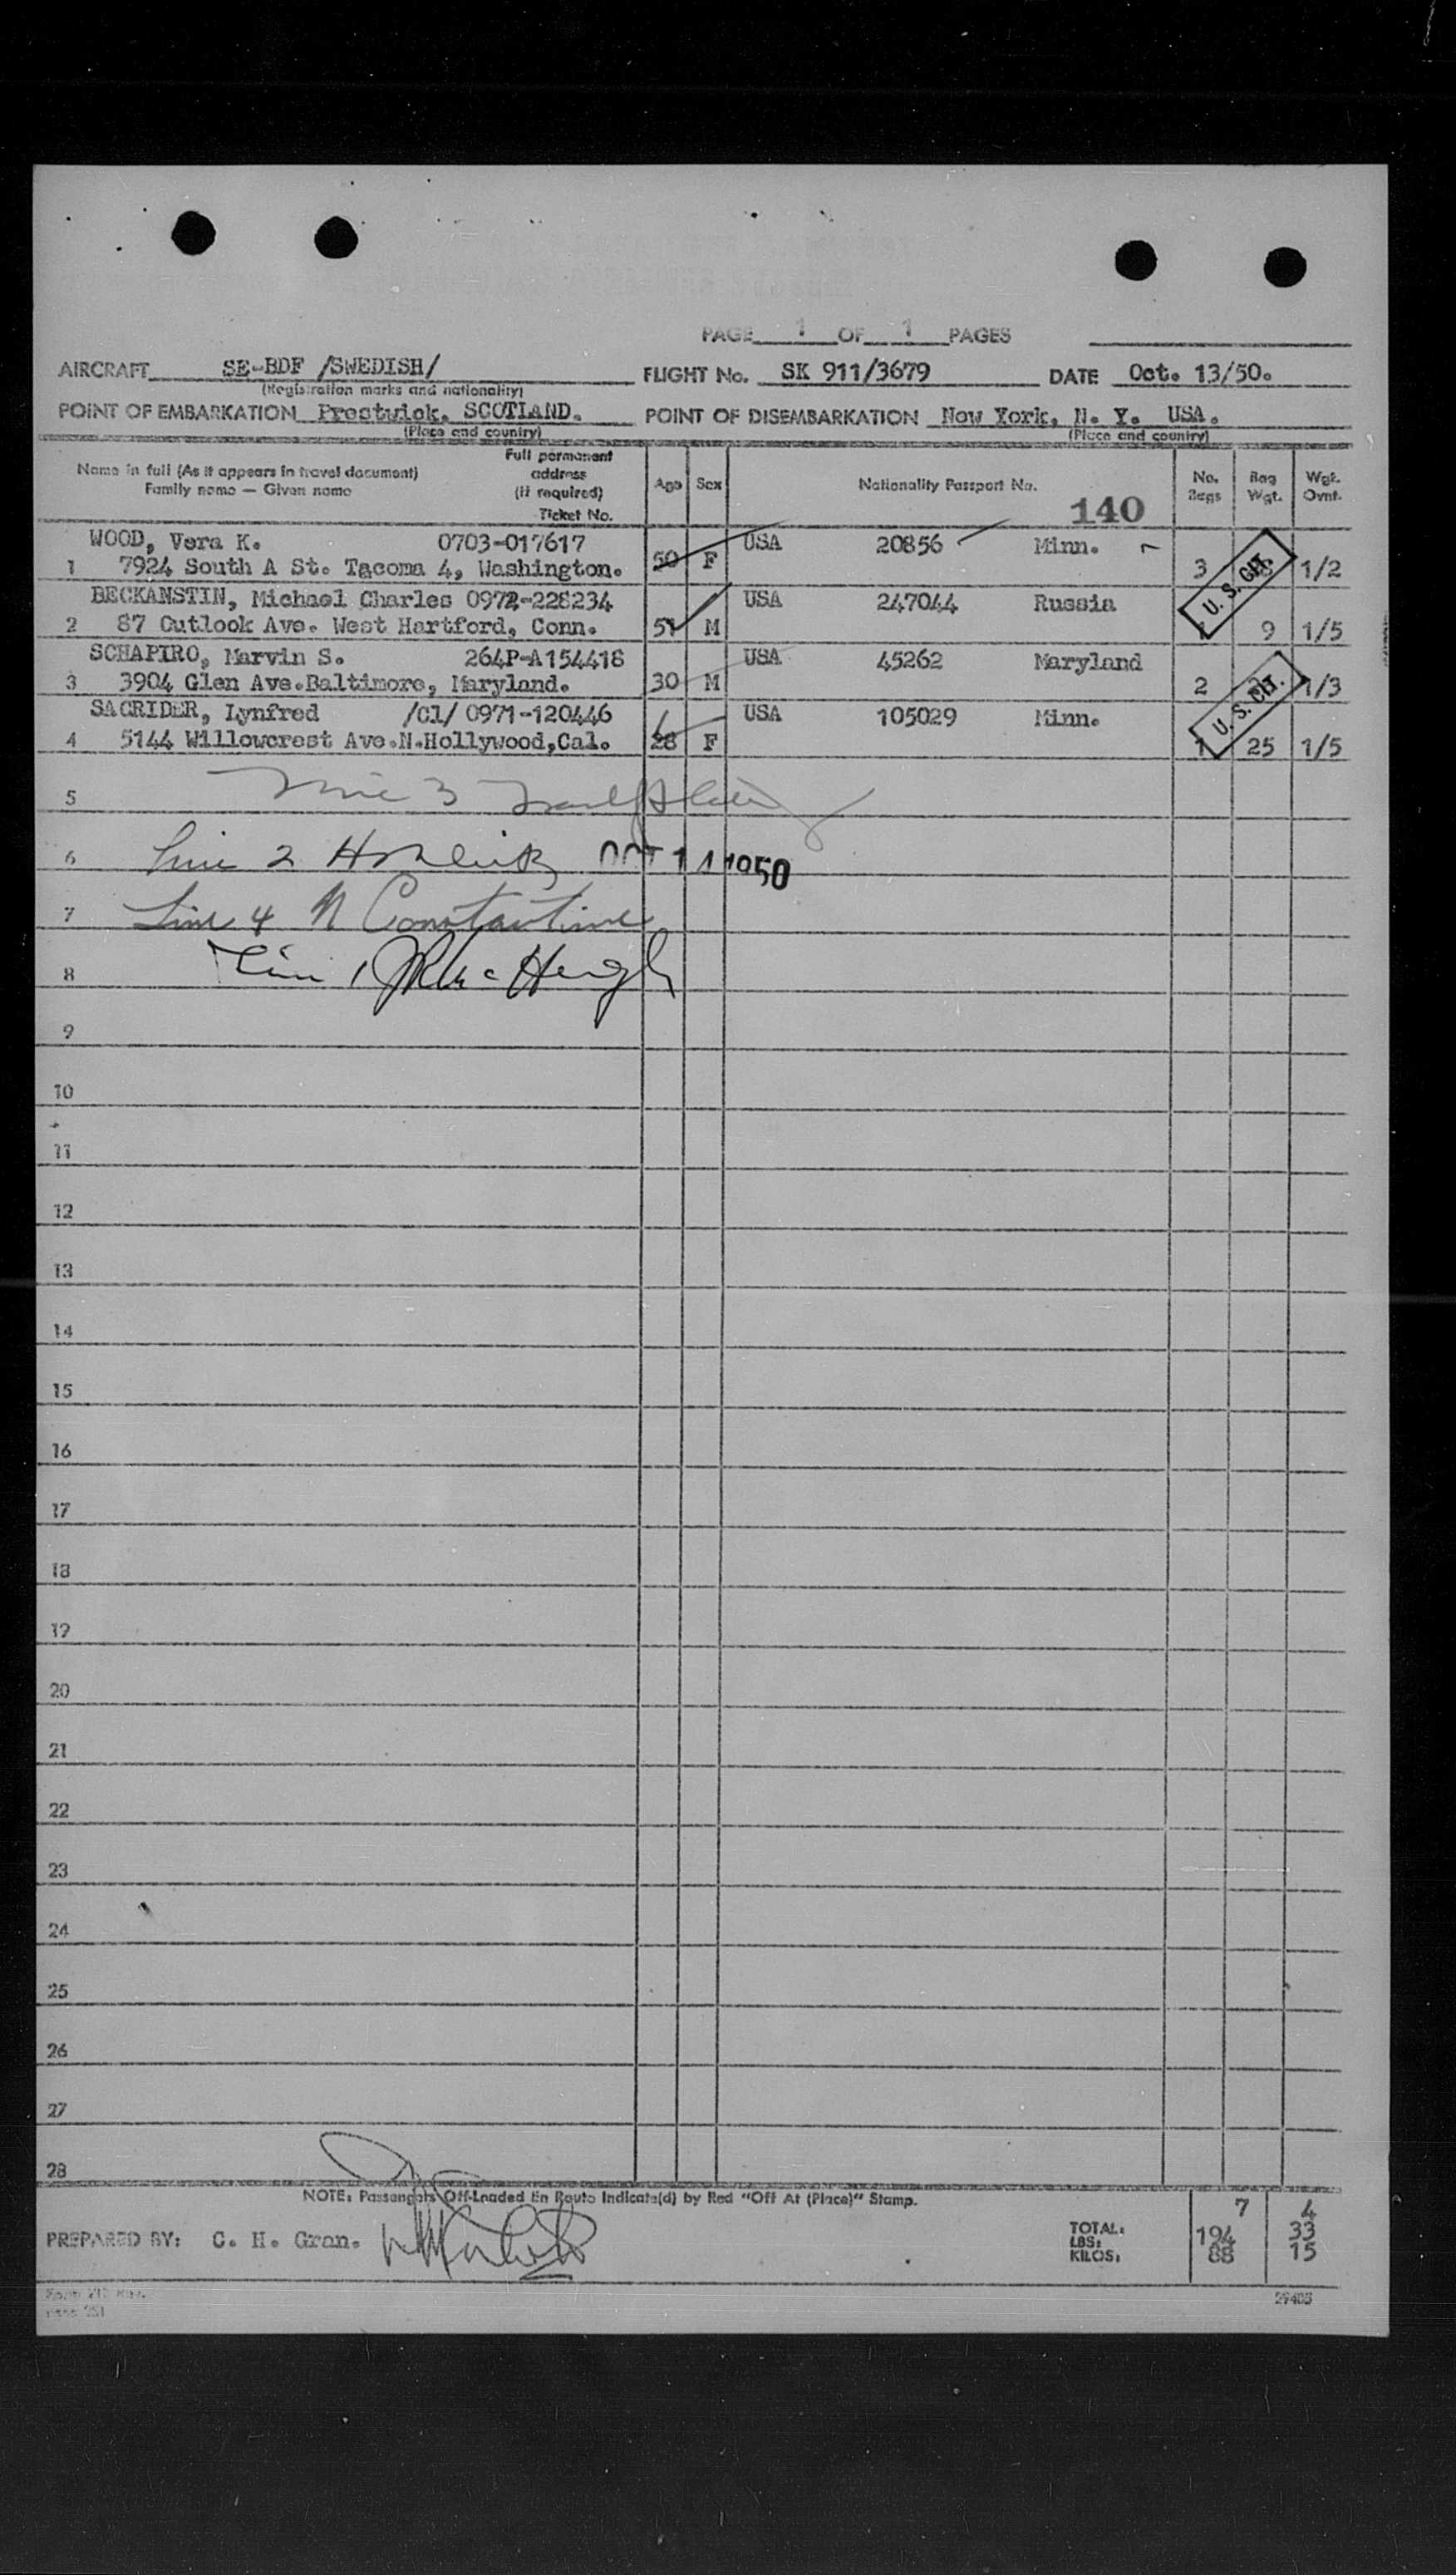 PAGE 1 OF 1 PAGES
AIRCRAFT SE-BDF /SWEDISH/ FLIGHT No. SK 911/3679 DATE Oct. 13/50.
(Registration marks and nationality)
POINT OF EMBARKATION Prestwick, SCOTLAND. POINT OF DISEMBARKATION New York, N. Y. USA.
(Place and country) (Place and country)
Name in full (As it appears in travel document) Family name — Given name Full permanent address (if required) Ticket No. Age Sex Nationality Passport No. No. Bags Bag Wgt. Wgt. Ovnt.
140
WOOD, Vera K. 0703-017617 USA 20856 Minn.
1 7924 South A St. Tacoma 4, Washington. 50 F 3 1/2
U. S. CIT.
BECKANSTIN, Michael Charles 0972-228234 USA 247044 Russia
2 87 Outlook Ave. West Hartford, Conn. 51 M 1 9 1/5
SCHAPIRO, Marvin S. 264P-A154418 USA 45262 Maryland
3 3904 Glen Ave.Baltimore, Maryland. 30 M 2 1/3
U. S. CIT.
SACRIDER, Lynfred /Cl/ 0971-120446 USA 105029 Minn.
4 5144 Willowcrest Ave.N.Hollywood,Cal. 28 F 1 25 1/5
5 Line 3
6 Line 2 OCT 14 1950
7 Line 4 N Constantine
8 Line 1
9
10
11
12
13
14
15
16
17
18
19
20
21
22
23
24
25
26
27
28
NOTE: Passengers Off-Loaded En Route Indicate(d) by Red "Off At (Place)" Stamp.
7 4
PREPARED BY: C. H. Gran. TOTAL:
LBS: 194 33
KILOS: 88 15
29408